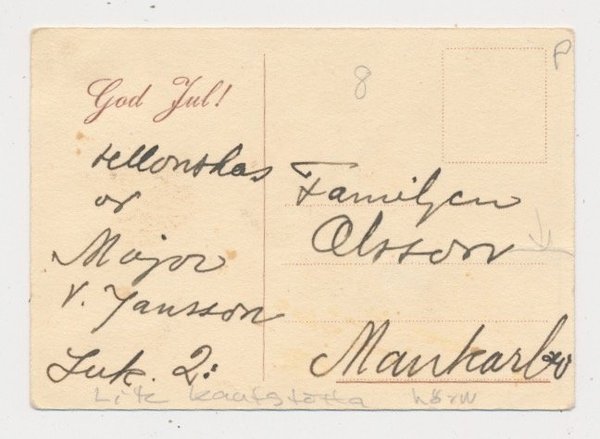 God Jul!
tillönskas
av
Major
V. Jansson
Luk. 2:
Familjen
Olsson
Mankarbo
8
P
Lite kantstötta hörn